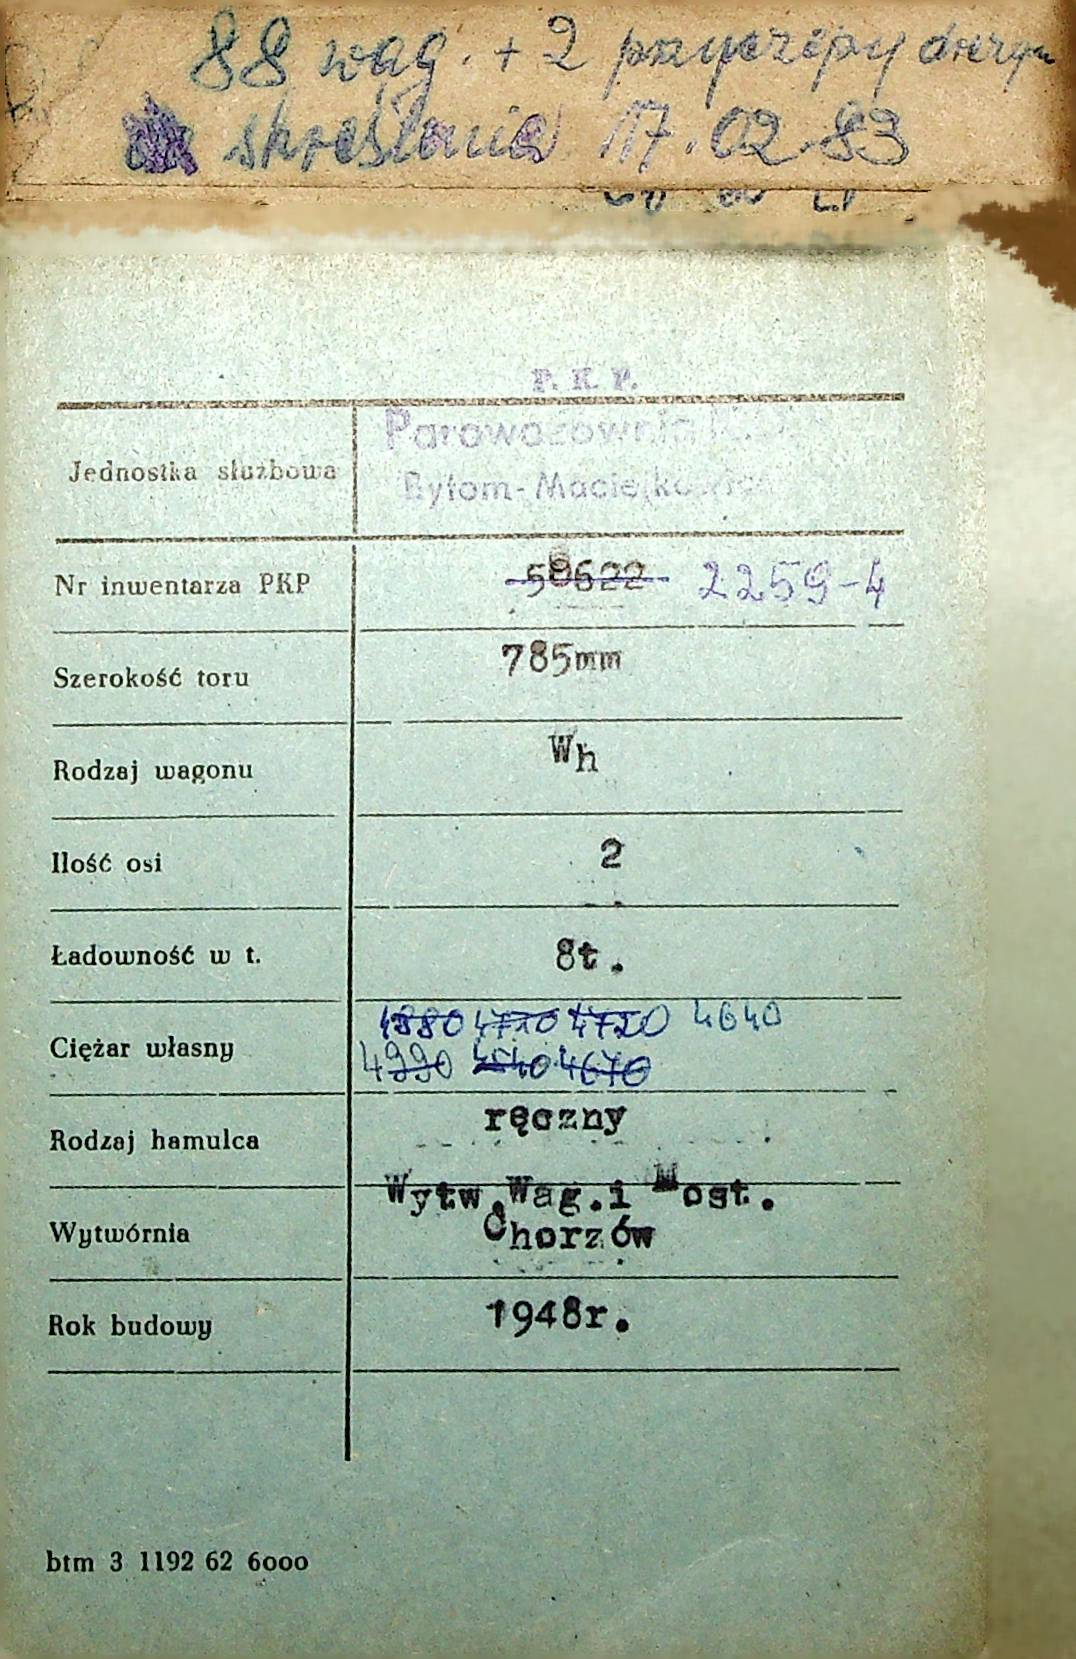 88 wag. + 2 przyczepy
skreślenia 17.02.83
P. K. P.
Jednostka służbowa
Parowozownia
Bytom-Maciejkowice
Nr inwentarza PKP 58622 2259-4
Szerokość toru 785mm
Rodzaj wagonu Wh
Ilość osi 2
Ładowność w t. 8t.
4880 4710 4720 4640
Ciężar własny
4990 4640 4670
Rodzaj hamulca ręczny
Wytw.Wag.i Most.
Wytwórnia Chorzów
Rok budowy 1948r.
btm 3 1192 62 6000